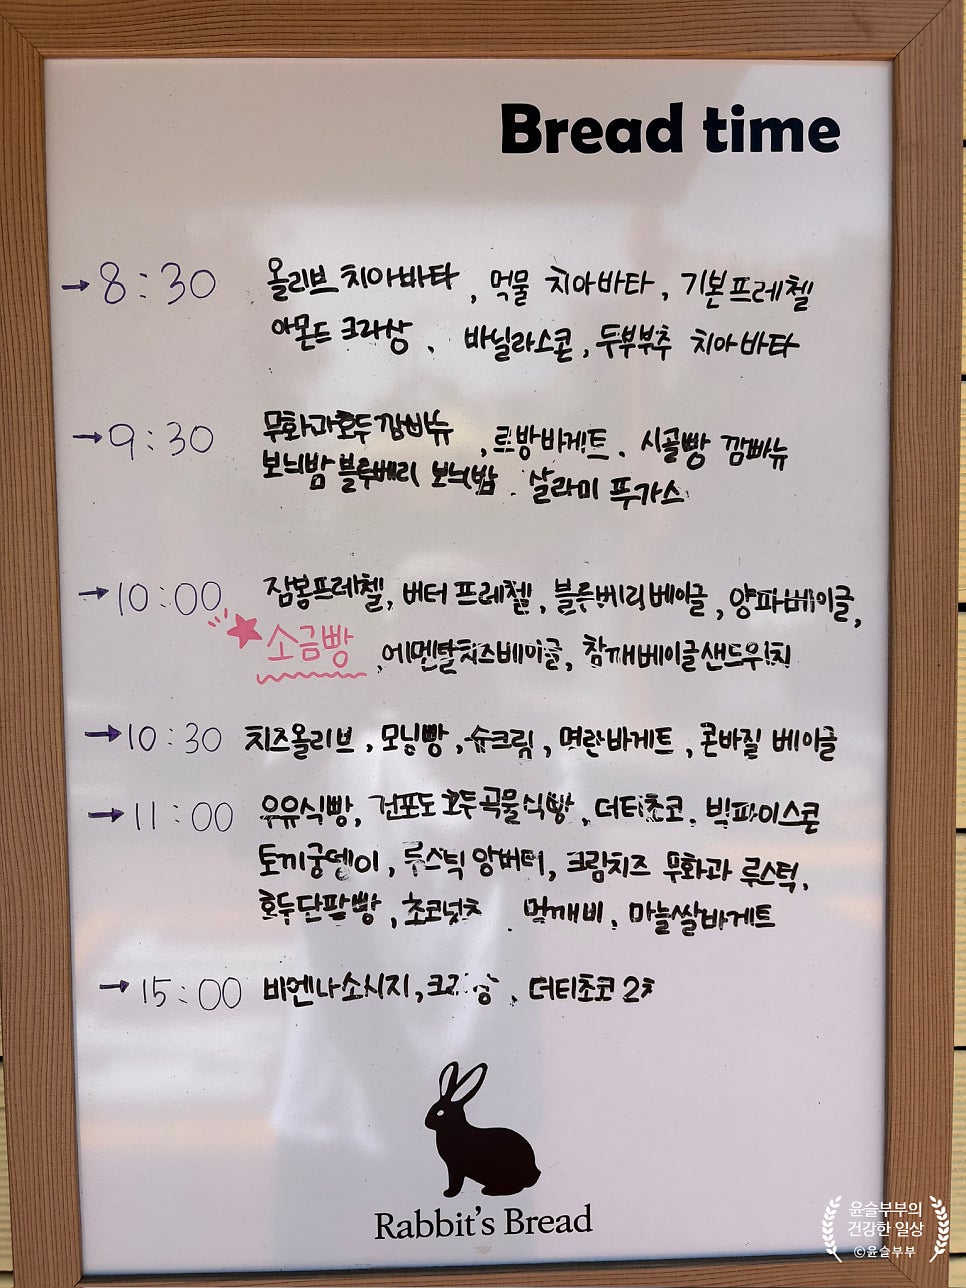 Bread time
→ 8:30 올리브 치아바타, 먹물 치아바타, 기본프레첼
아몬드 크라상, 바닐라스콘, 두부부추 치아바타
→ 9:30 무화과호두깜빠뉴, 르방바게트. 시골빵 깜빠뉴
보늬밤블루베리 보늬밤. 살라미 푸가스
→ 10:00 잠봉프레첼, 버터 프레첼, 블루베리베이글, 양파베이글,
★소금빵, 에멘탈치즈베이글, 참깨베이글샌드위치
→ 10:30 치즈올리브, 모닝빵, 슈크림, 명란바게트, 콘바질 베이글
→ 11:00 우유식빵, 건포도호두곡물식빵, 더티초코. 빅파이스콘
토끼궁뎅이, 루스틱 앙버터, 크림치즈 무화과 루스틱.
호두단팥빵, 초코넛츠 먹깨비, 마늘쌀바게트
→ 15:00 비엔나소시지, 더티초코 2차
Rabbit's Bread
윤슬부부의
건강한 일상
©윤슬부부